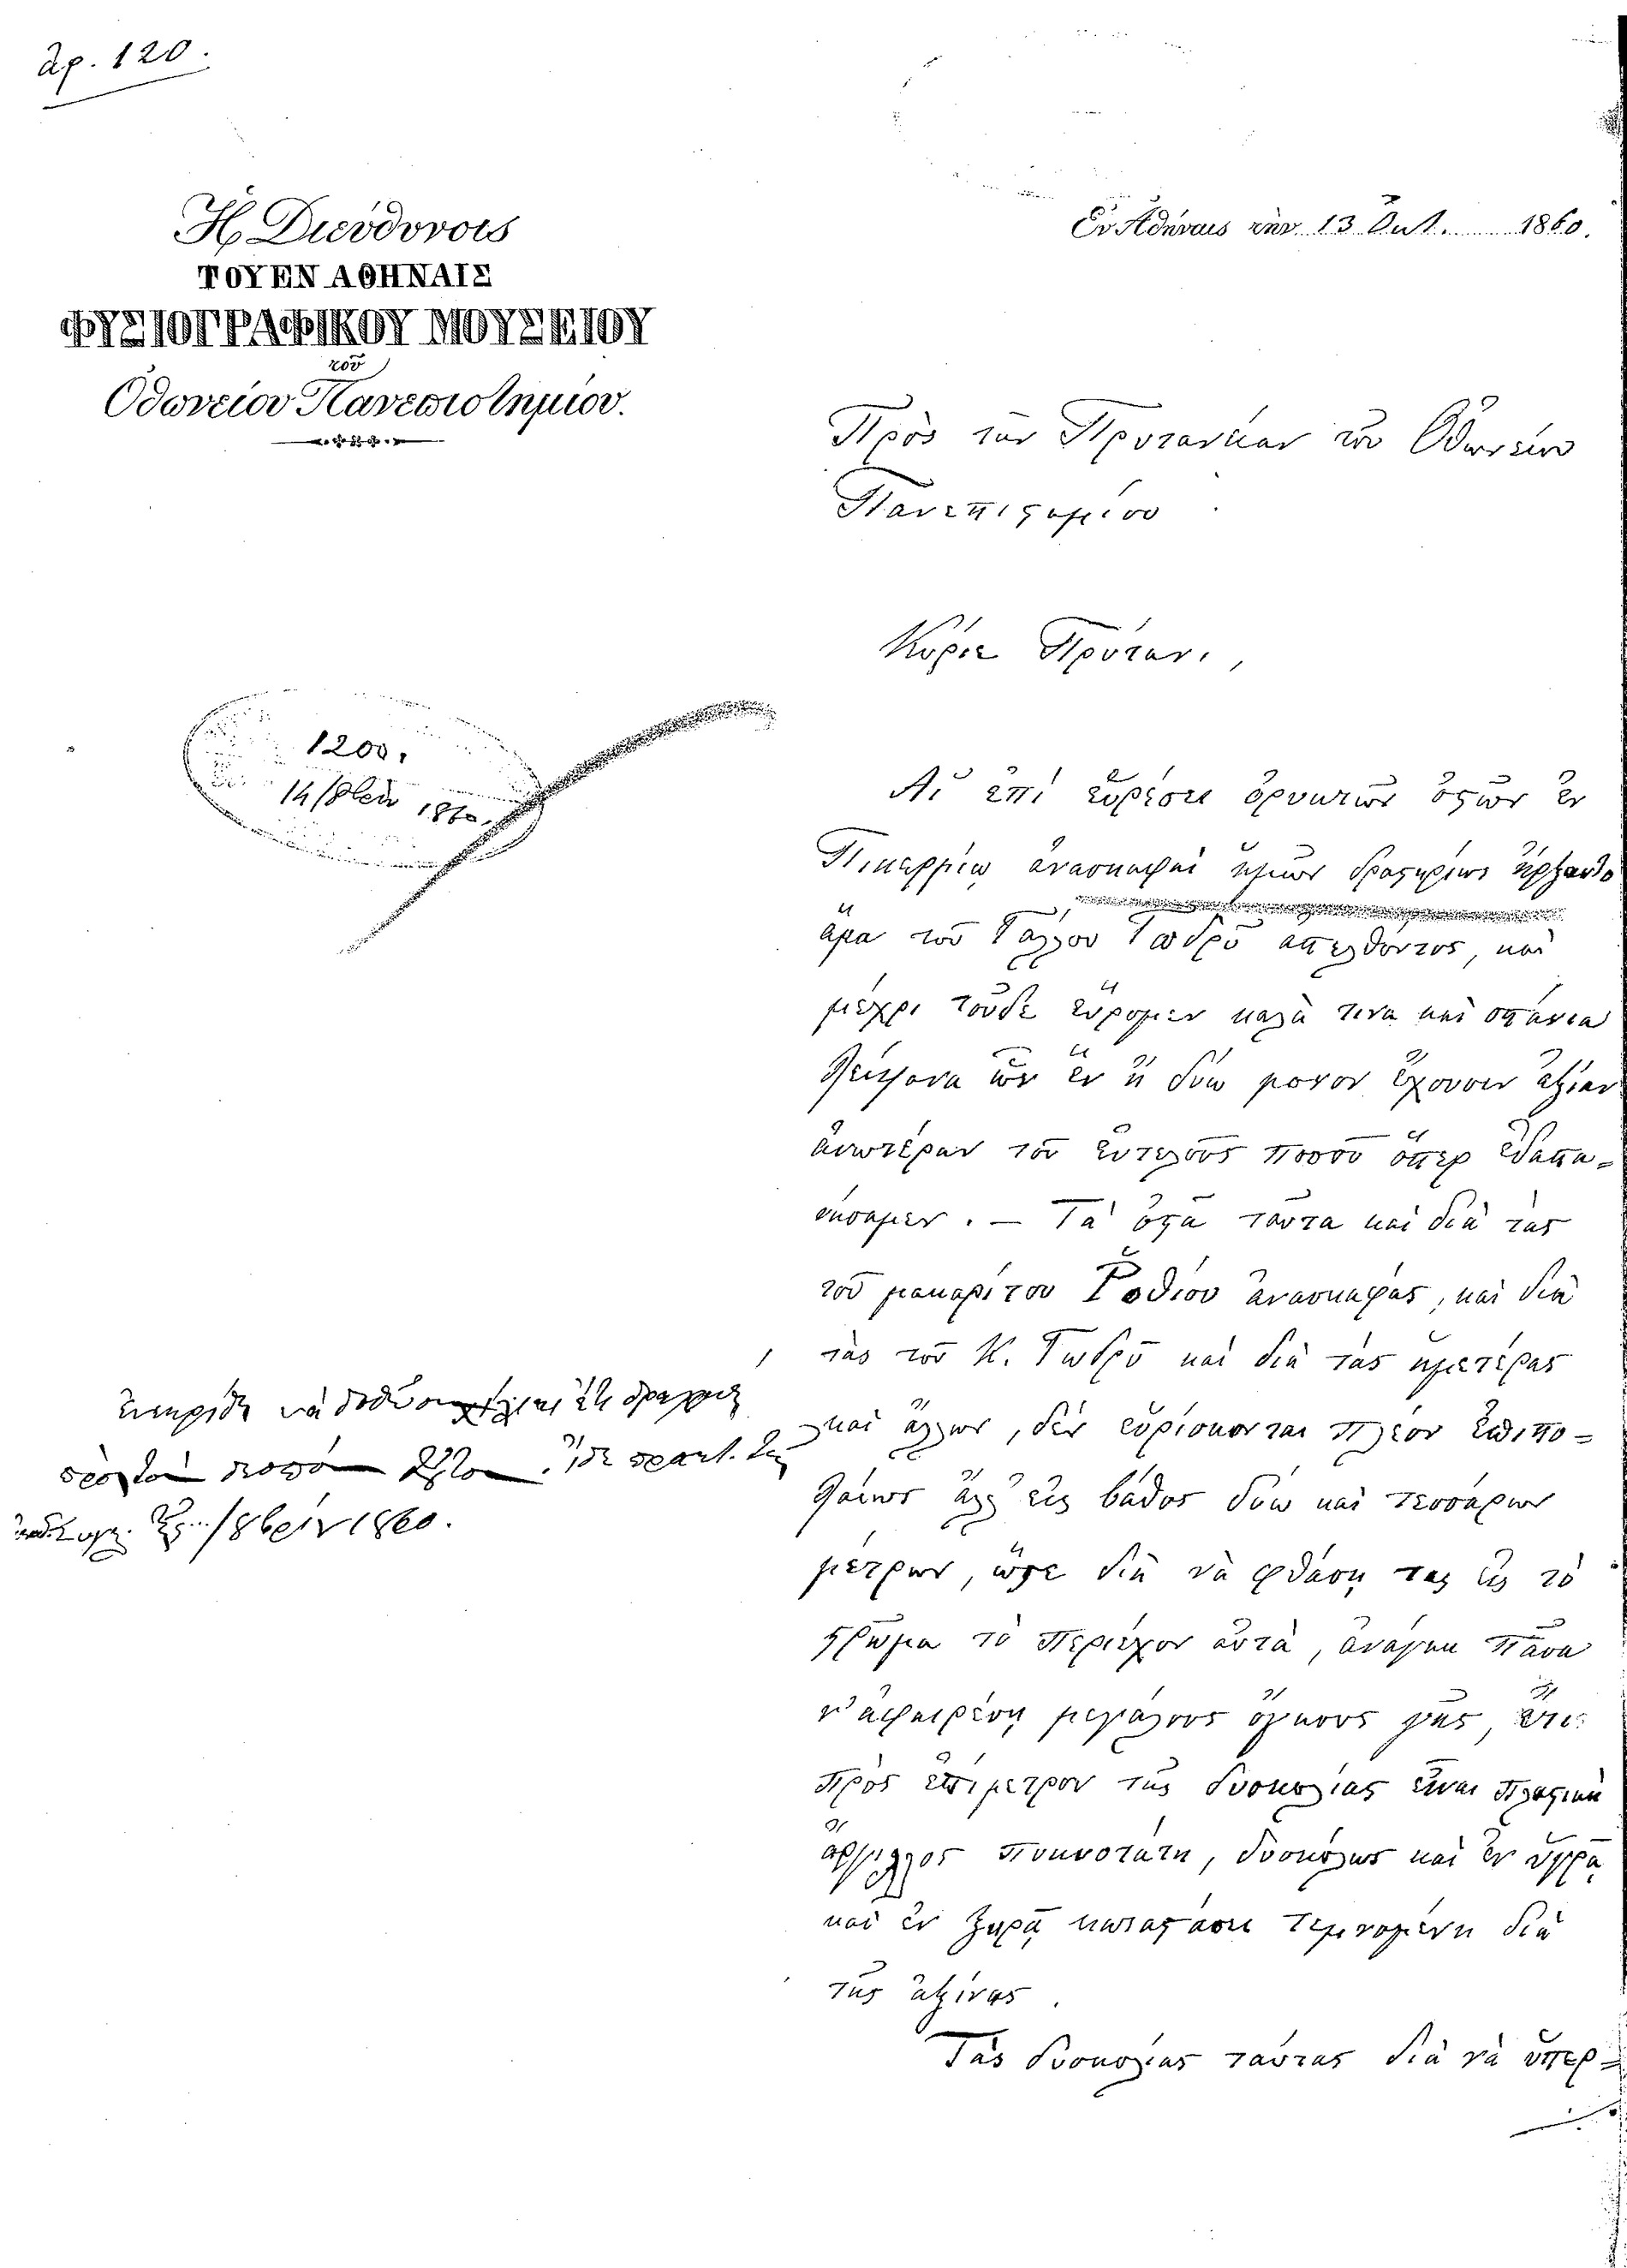 ἀρ. 120.
Ἡ Διεύθυνσις
ΤΟΥ ΕΝ ΑΘΗΝΑΙΣ
ΦΥΣΙΟΓΡΑΦΙΚΟΥ ΜΟΥΣΕΙΟΥ
τοῦ
Ὀθωνείου Πανεπιστημίου.
Ἐν Ἀθήναις τὴν 13 Ὀκτ. 1860.
Πρὸς τὴν Πρυτανείαν τοῦ Ὀθωνείου
Πανεπιστημίου
Κύριε Πρύτανι,
1200.
14/8βρίου 1860.
Αἱ ἐπὶ εὑρέσει ὀρυκτῶν ὀστῶν ἐν
Πικερμίῳ ἀνασκαφαὶ ἡμῶν δραστηρίως ἤρξαντο
ἅμα τοῦ Γάλλου Γωδρῦ ἀπελθόντος, καὶ
μέχρι τοῦδε εὕρομεν καλά τινα καὶ σπάνια
λείψανα ὧν ἓν ἢ δύω μόνον ἔχουσιν ἀξίαν
ἀνωτέραν τοῦ εὐτελοῦς ποσοῦ ὅπερ ἐδαπα-
νήσαμεν. — Τὰ ὀστᾶ ταῦτα καὶ διὰ τὰς
τοῦ μακαρίτου Ῥοθίου ἀνασκαφάς, καὶ διὰ
τὰς τοῦ Κ. Γωδρῦ καὶ διὰ τὰς ἡμετέρας
καὶ ἄλλων, δὲν εὑρίσκονται πλέον ἐπιπο-
λαίως ἀλλ' εἰς βάθος δύω καὶ τεσσάρων
μέτρων, ὥστε διὰ νὰ φθάσῃ τις εἰς τὸ
στρῶμα τὸ περιέχον αὐτὰ, ἀνάγκη πᾶσα
ν' ἀφαιρέσῃ μεγάλους ὄγκους γῆς, ἥτις
πρὸς ἐπίμετρον τῆς δυσκολίας εἶναι πλαστικὴ
ἄργιλλος πυκνοτάτη, δυσκόλως καὶ ἐν ὑγρᾷ
καὶ ἐν ξηρᾷ καταστάσει τεμνομένη διὰ
τῆς ἀξίνης.
Τὰς δυσκολίας ταύτας διὰ νὰ ὑπερ-
ἐνεκρίθη νὰ δοθῶσι χίλιαι ἔτι δραχμαὶ
πρὸς τὸν σκοπὸν τοῦτον. Ἴδε πρακτ. τῆς
8βρίου 1860.